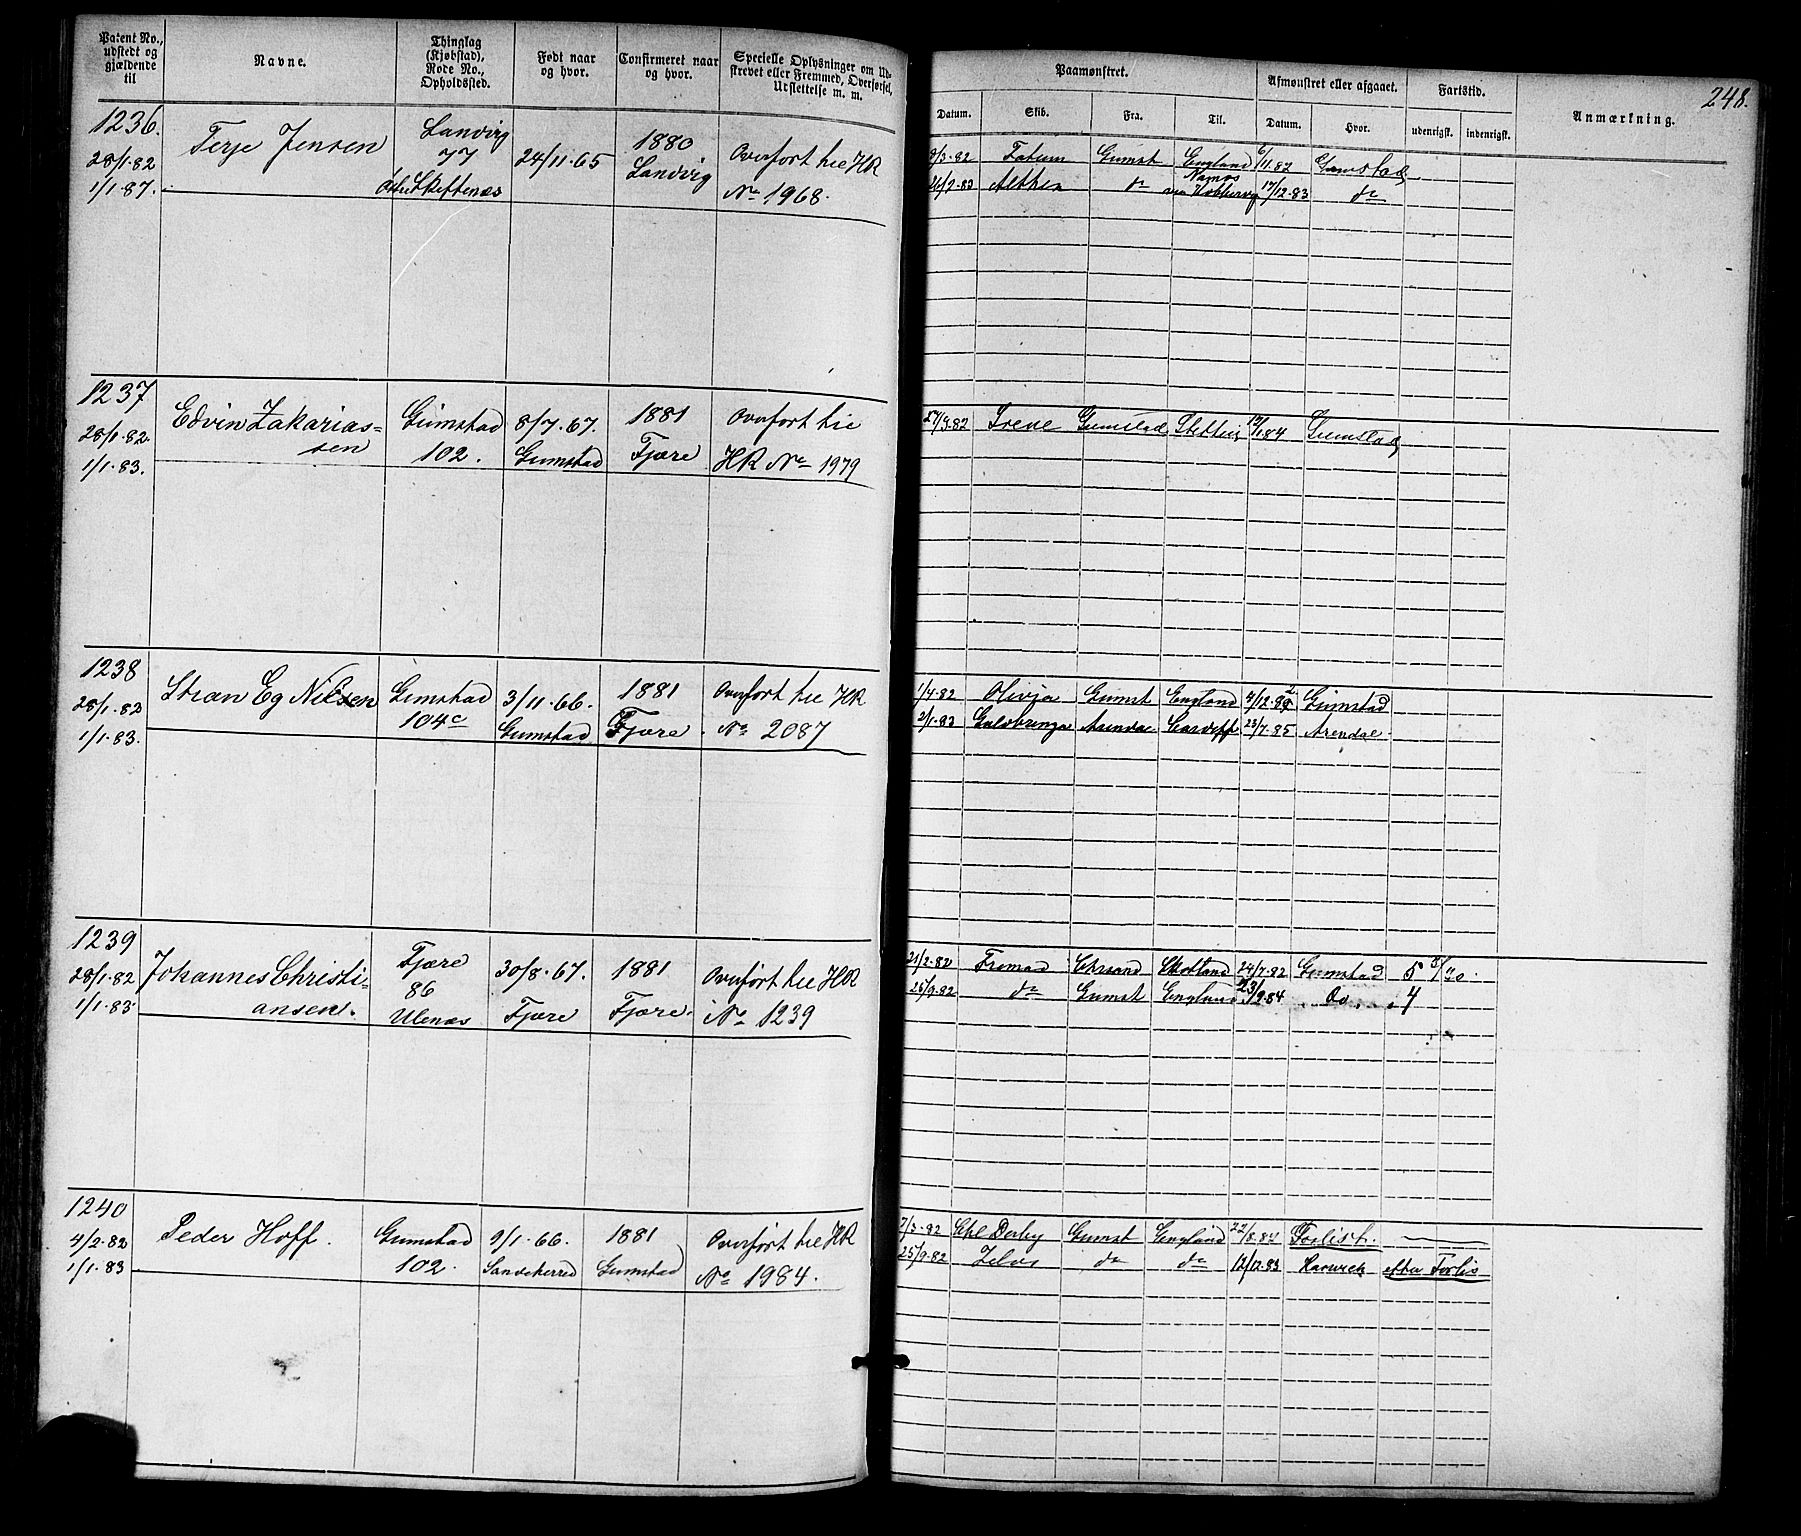 248.
Patent No., udstedt og gjældende til
Navne.
Thinglag (Kjøbstad), Rode No., Opholdssted.
Født naar og hvor.
Confirmeret naar og hvor.
Specielle Oplysninger om Udskrevet eller Fremmed, Overførsel, Udslettelse m. m.
Paamønstret.
Afmønstret eller afgaaet.
Fartstid.
Anmærkning.
Datum.
Skib.
Fra.
Til.
Datum.
Hvor.
udenrigsk.
indenrigsk.
1236.
28/1.82
1/1.87.
Terje Jensen
Landvig
77
Skiftenæs
24/11.65
1880
Landvig
Overført hie HR
No 1968.
8/3.82 Fatum Grimst England 6/11.82 Grimstad
26/2.83 Althea do 17/12.83 do
1237
28/1.82.
1/1.83.
Edvin Zakarias=
sen
Grimstad
102.
8/7.67.
Grimstad
1881
Fjære
Overført hie
HR No 1979
27/9.82 Grimstad Stettin 19/1.84 Grimstad
1238
28/1.82
1/1.83.
Stean Eg Nilsen
Grimstad
104c
3/11.66.
Grimstad
1881
Fjære.
Overført hie HR
No 2087
1/4.82 Olivia Grimst England 4/12.82 Grimstad
2/1.83 Arendal Cardiff 23/7.85 Arendal.
1239
28/1.82
1/1.83.
Johannes Christi=
ansen.
Fjære
86
Ulenæs
30/8.67.
Fjære
1881
Fjære.
Overført hie HR
i No 1239
21/2.82 Fremad Chrsand Skotland 24/7.82 Grimstad 5
25/9.82 do Grimst England 23/9.84 Do. 4
1240
4/2.82
1/1.83
Peder Hoff.
Grimstad
102.
9/1.66.
Sandeherred
1881
Grimstad
Overført hie HR
No 1984.
7/3.82 Derby Grimst England 22/8.84 Forlist.
25/9.82 Zelos do do 12/12.83 Harwich efter Forlis